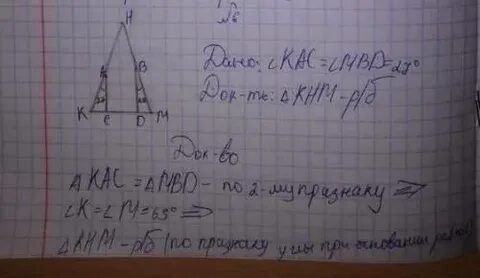 №6
H
A B
K C D M
Дано: ∠KAC=∠MBD=27°
Док-ть: △KHM-р/б
Док-во
△KAC=△MBD- по 2-му признаку ⇒
∠K=∠M=63° ⇒
△KHM-р/б (по признаку углы при основании равны)